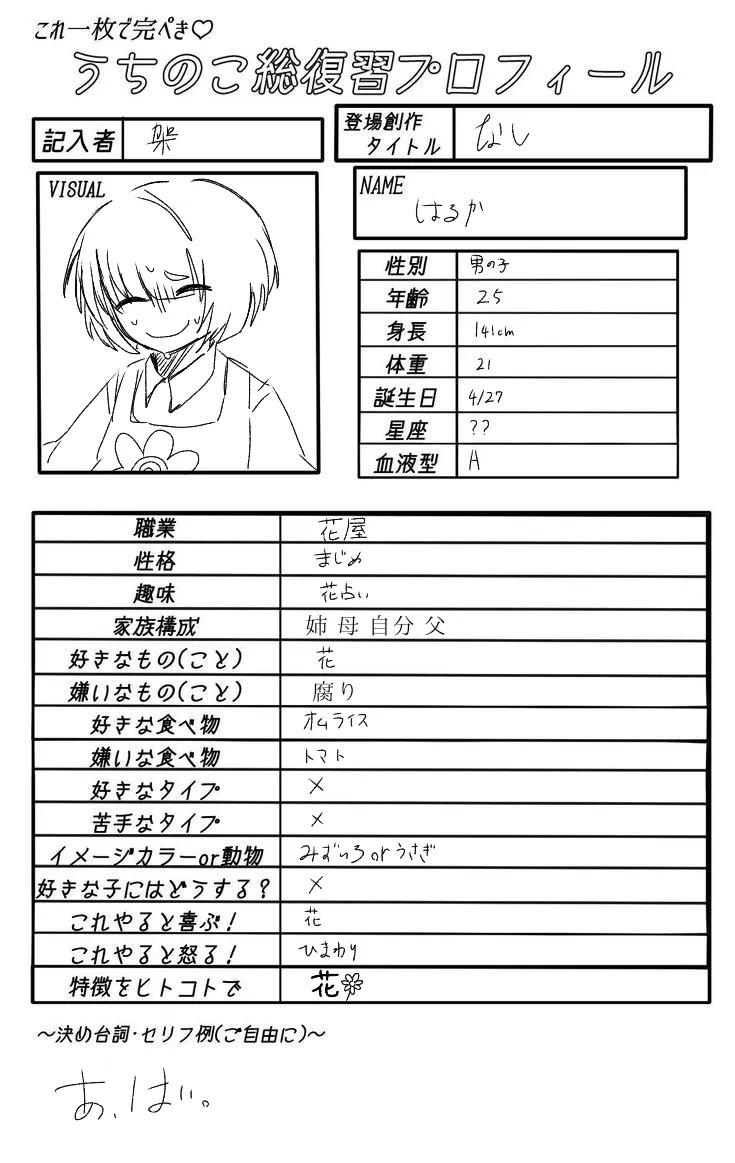 これ一枚で完ぺき♡
うちのこ総復習プロフィール
記入者 架
登場創作タイトル なし
VISUAL
NAME
はるか
性別 男の子
年齢 25
身長 141cm
体重 21
誕生日 4/27
星座 ??
血液型 A
職業 花屋
性格 まじめ
趣味 花占い
家族構成 姉 母 自分 父
好きなもの(こと) 花
嫌いなもの(こと) 腐り
好きな食べ物 オムライス
嫌いな食べ物 トマト
好きなタイプ ×
苦手なタイプ ×
イメージカラーor動物 みずいろorうさぎ
好きな子にはどうする? ×
これやると喜ぶ! 花
これやると怒る! ひまわり
特徴をヒトコトで 花
～決め台詞・セリフ例(ご自由に)～
あ、はい。